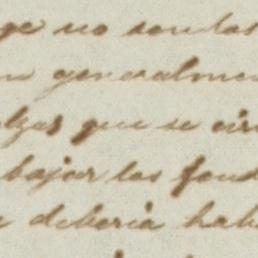 ge no son las
en generalmen
algas que se cir
bajar los fond
deberia hab